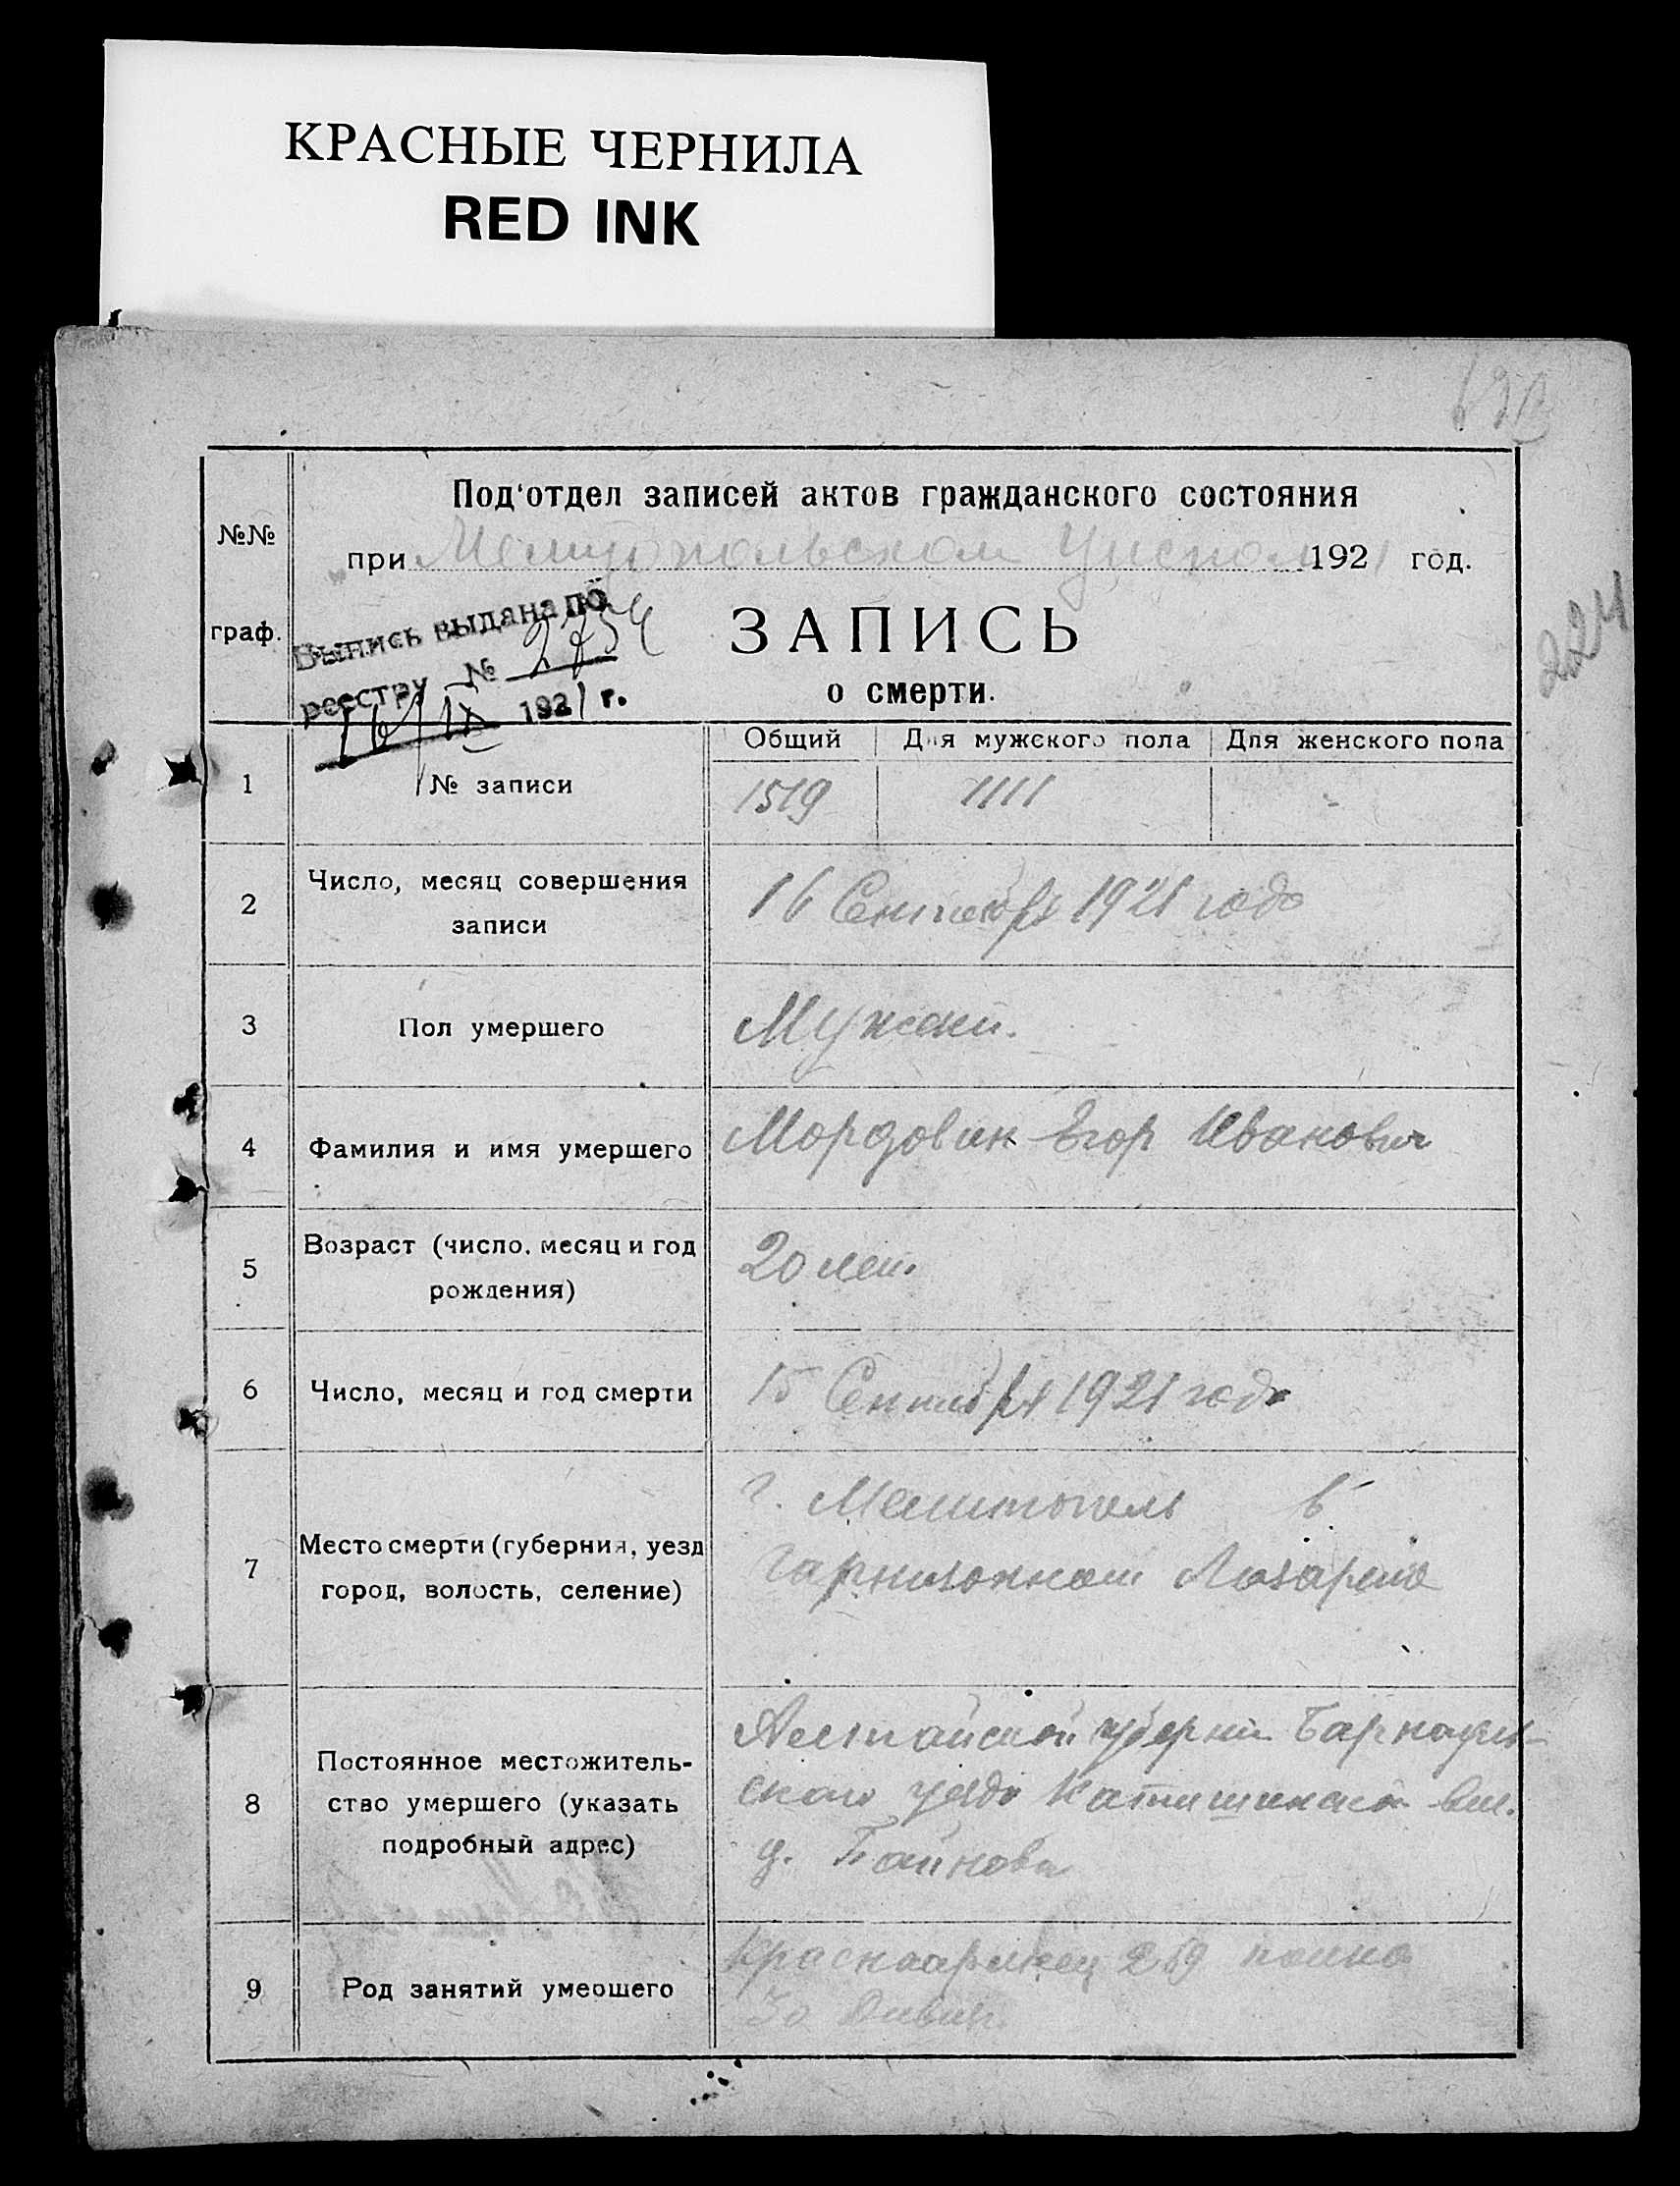 КРАСНЫЕ ЧЕРНИЛА
RED INK
224
№№ граф.
Под'отдел записей актов гражданского состояния
при Мелитопольском Уиспол 1921 год.
Выпись выдана по
реестру № 2754
16/IX 1921 г.
ЗАПИСЬ
о смерти.
Общий Для мужского пола Для женского пола
1 № записи 1519 1111 -
2 Число, месяц совершения
записи
16 Сентября 1921 года
3 Пол умершего Мужский.
4 Фамилия и имя умершего Мордовин Егор Иванович
5 Возраст (число, месяц и год
рождения)
20 лет.
6 Число, месяц и год смерти 15 Сентября 1921 года
7 Место смерти (губерния, уезд
город, волость, селение)
г. Мелитополь в
гарнизонном Лазарете
8 Постоянное местожитель-
ство умершего (указать
подробный адрес)
Алтайской губернии Барнауль-
ского уезда вол.
д.
9 Род занятий умершего
Красноармеец 269 полка
30 Дивиз.